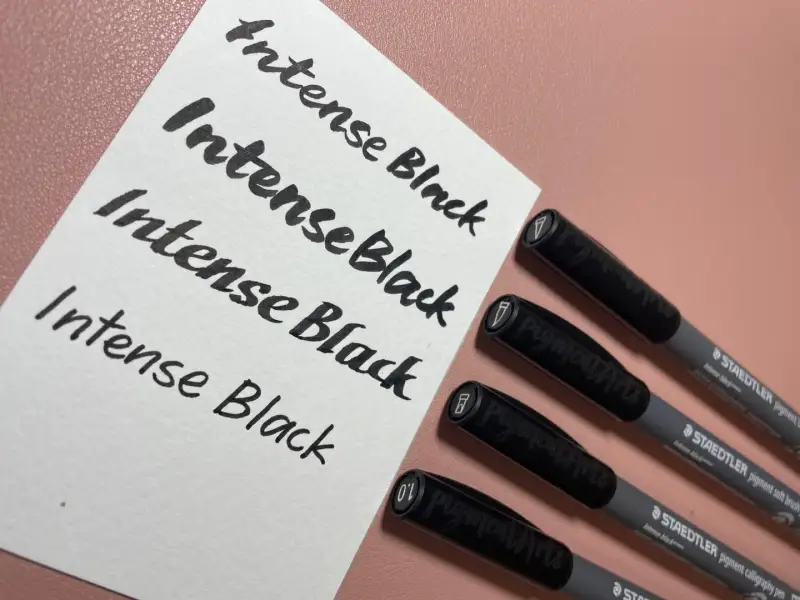 Intense Black
Intense Black
Intense Black
Intense Black
STAEDTLER pigment
STAEDTLER pigment soft brush
STAEDTLER pigment calligraphy pen
1.0
STAEDTLER